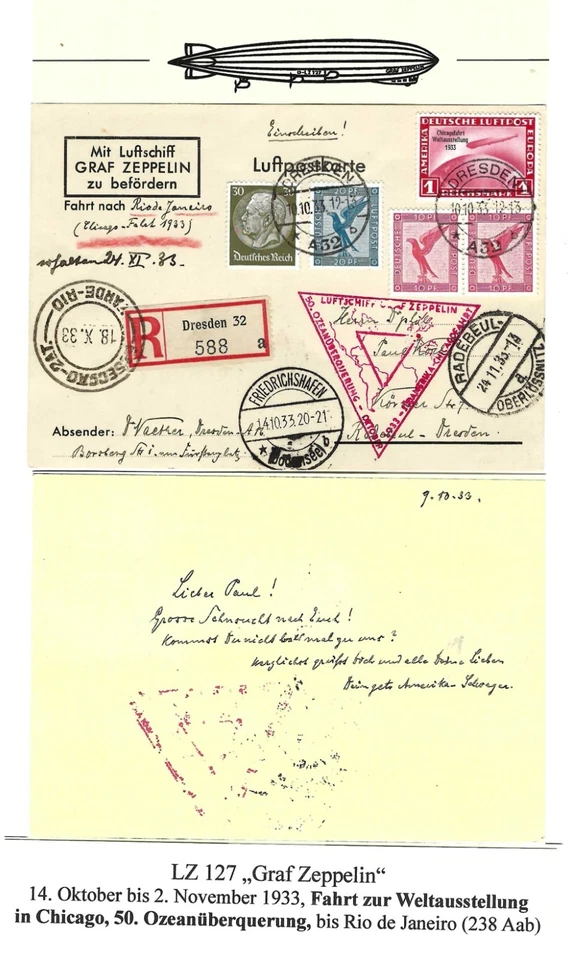 GRAF ZEPPELIN
Einschreiben!
Mit Luftschiff
GRAF ZEPPELIN
zu befördern
Luftpostkarte
Fahrt nach Rio de Janeiro
1933)
erhalten 24. XI. 33.
30
Deutsches Reich
20 PF. 20 PF.
LUFTPOST
DRESDEN
10.10.33.12-13
A32 b
DEUTSCHE LUFTPOST
AMERIKA
EUROPA
Chicagofahrt
Weltausstellung
1933
1 REICHSMARK 1
DRESDEN
10.10.33.12-13
* A32
DEUTSCHE LUFTPOST
10 PF. 10 PF.
18. X. 33
R
Dresden 32
588 a
LUFTSCHIFF GRAF ZEPPELIN
50. OZEANÜBERQUERUNG - OKTOBER 1933
Herrn
Paul
RADEBEUL-
24.11.33.
OBERLÖSSNITZ
FRIEDRICHSHAFEN
14.10.33.20-21
* (Bodensee) b
Dresden.
Absender: Dresden-A.
9.10.33.
Lieber Paul!
Grosse Sehnsucht nach Euch!
Kommst Du nicht bald mal zu uns?
Herzlichst grüsst Dich und alle Deine Lieben
Amerika-
LZ 127 „Graf Zeppelin“
14. Oktober bis 2. November 1933, Fahrt zur Weltausstellung
in Chicago, 50. Ozeanüberquerung, bis Rio de Janeiro (238 Aab)